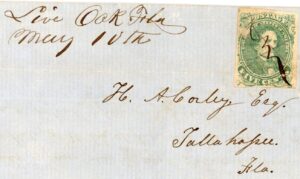 Live Oak Fla
May 10th
5
H. A. Corley Esq.
Tallahassee.
Fla.